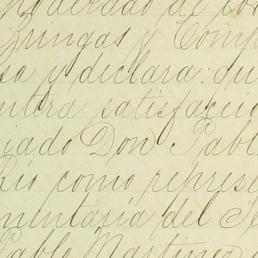 apoderado de los
Zringas y Comp
sa y declara: que
entera satisfacció
ciado Don Pabl
Rio como represe
mentaría del Se
Pablo Martinez